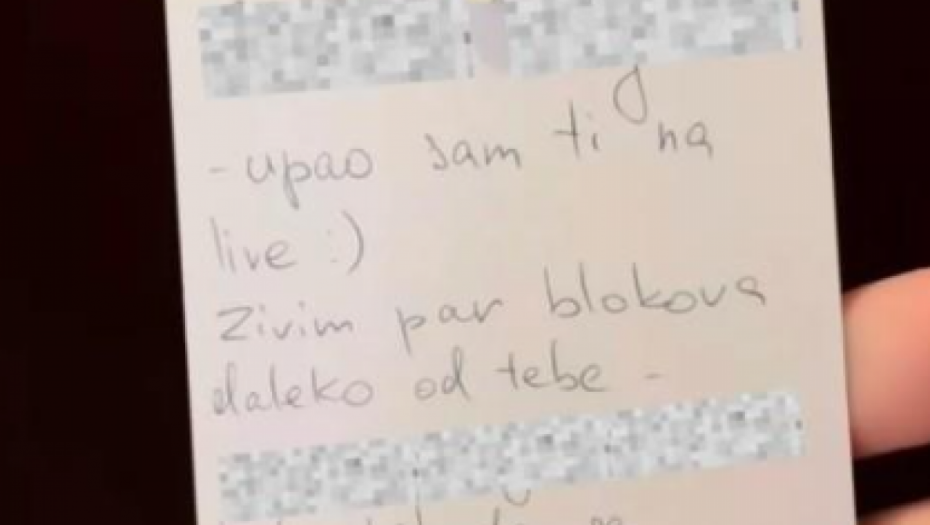 - upao sam ti na
live :)
zivim par blokova
daleko od tebe -